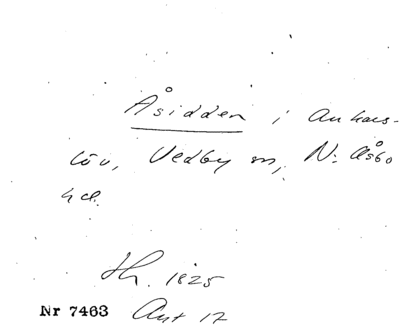 Åsidden i Ankars-
löv, Vedby sn, N. Åsbo
hd.
Hr. 1825
Nr 7463 Akt 17